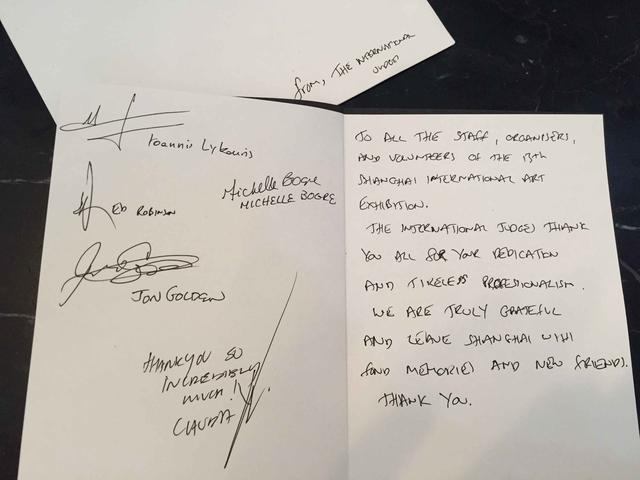 from, THE INTERNATIONAL
JUDGES
Ioannis Lykouris
ED ROBINSON
Michelle Bogre
MICHELLE BOGRE
JON GOLDEN
THANK YOU SO
INCREDIBLY
MUCH!
CLAUDIA
TO ALL THE STAFF, ORGANISERS,
AND VOLUNTEERS OF THE 13th
SHANGHAI INTERNATIONAL ART
EXHIBITION.
THE INTERNATIONAL JUDGES THANK
YOU ALL FOR YOUR DEDICATION
AND TIRELESS PROFESIONALISM.
WE ARE TRULY GRATEFUL
AND LEAVE SHANGHAI WITH
fOND MEMORIES AND NEW FRIENDS.
THANK YOU.